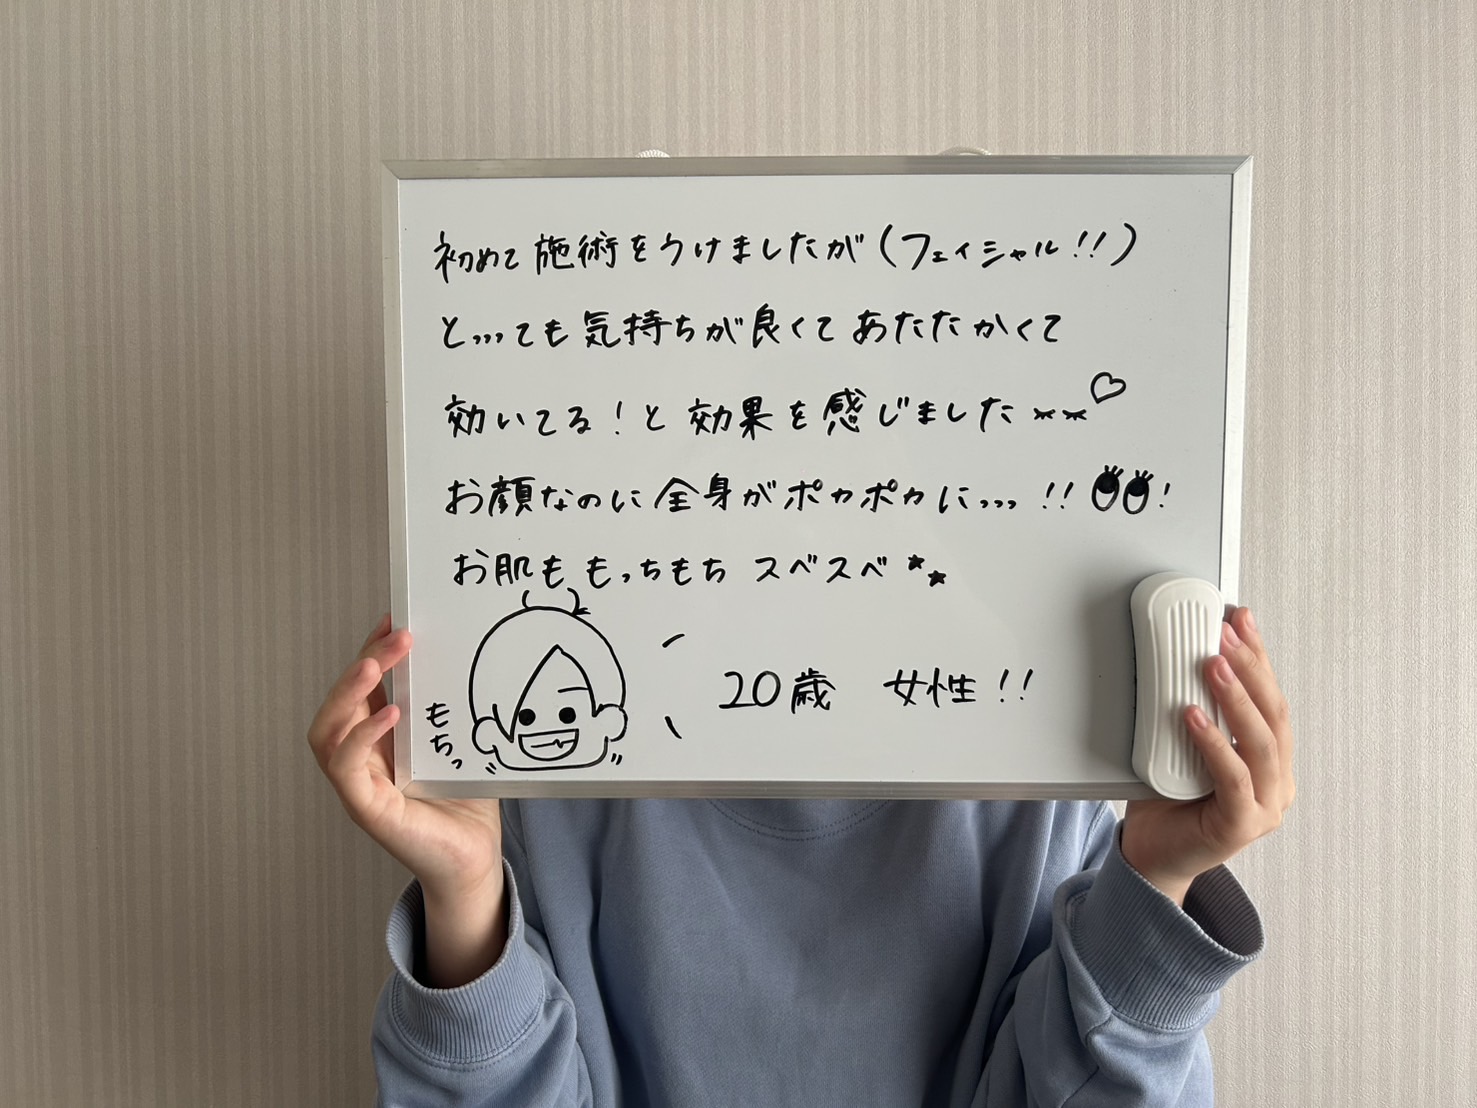 初めて施術をうけましたが(フェイシャル!!)
と,,,ても気持ちが良くてあたたかくて
効いてる!と効果を感じました♡
お顔なのに全身がポカポカに,,,!!👀!
お肌ももっちもちスベスベ**
もちっ
20歳 女性!!